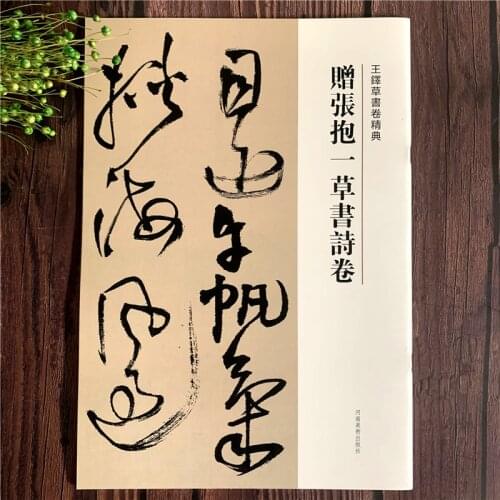 王鐸草書卷精典
贈張抱一草書詩卷
河南美術出版社
午帆
海風